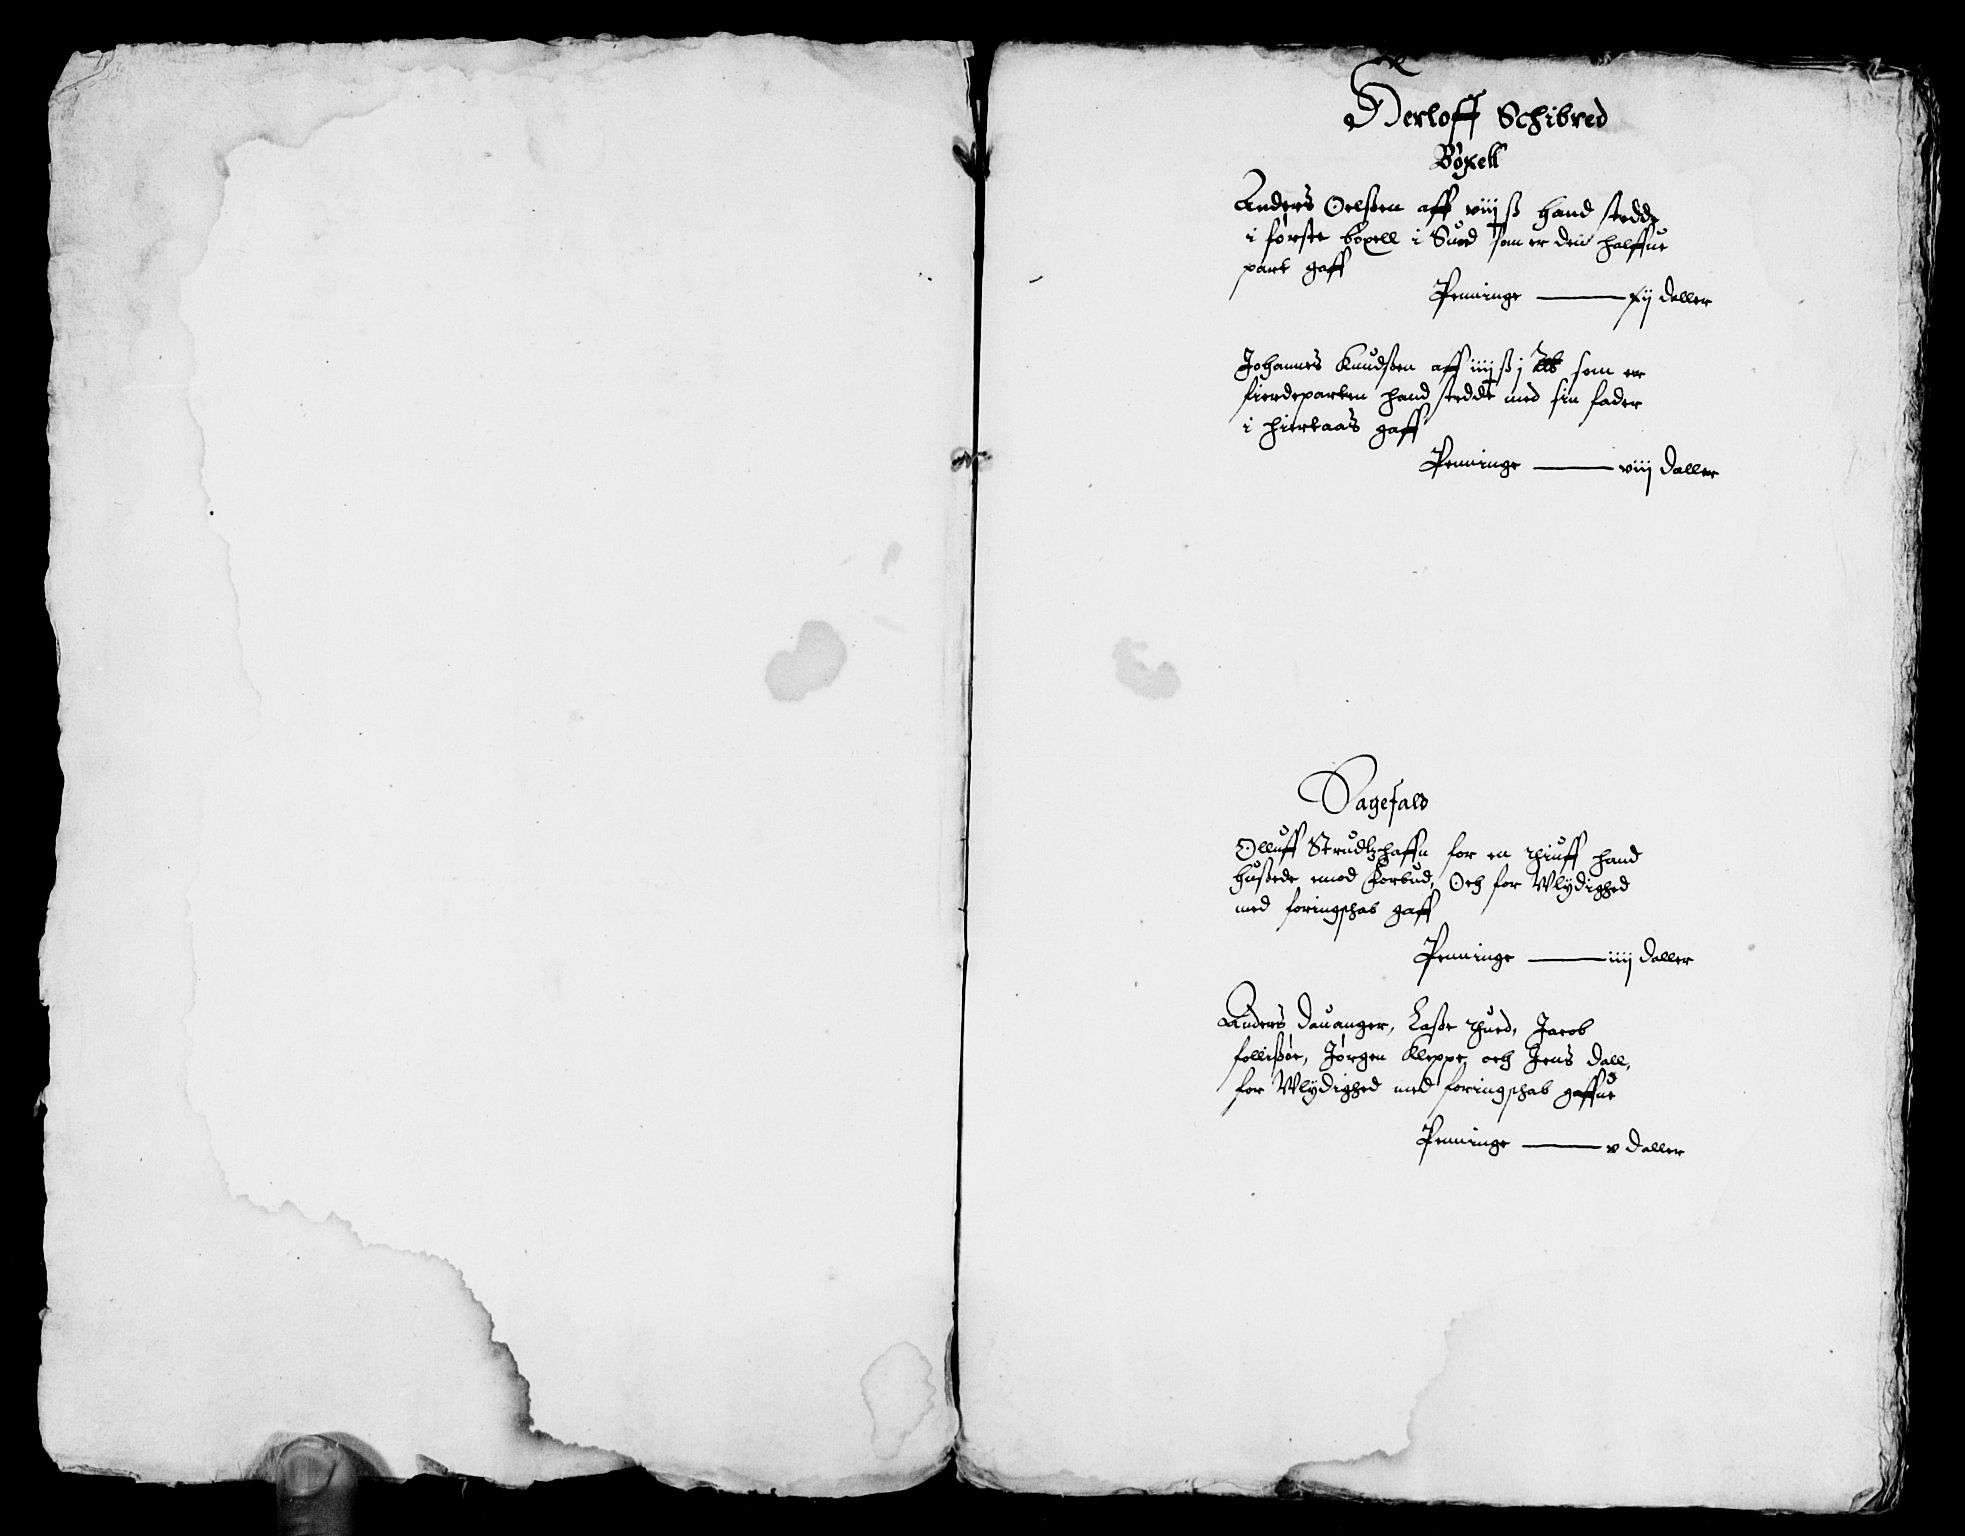 Herloff Schibred
Bøxell
Anders Oelßen aff viij ß hand stedde
i første boxell i Sued som er den halffue
part gaff
Penninge — xij daller
Johannes Knudßen aff iiij ß j som er
fierdeparten hand stedde med sin fader
i hiertaas gaff
Penninge — viij daller
Sagefald
Olluff Strudtzhaffn for en thiuff hand
hußede emod Forbud, Och for Wlydighed
med foringschab gaff
Penninge — iiij daller
Anders Dauanger, Laße thued, Jacob
follißøe, Jørgen Kleppe, och Jens Dall,
for Wlydighed med foringschab gaffue
Penninge — v daller